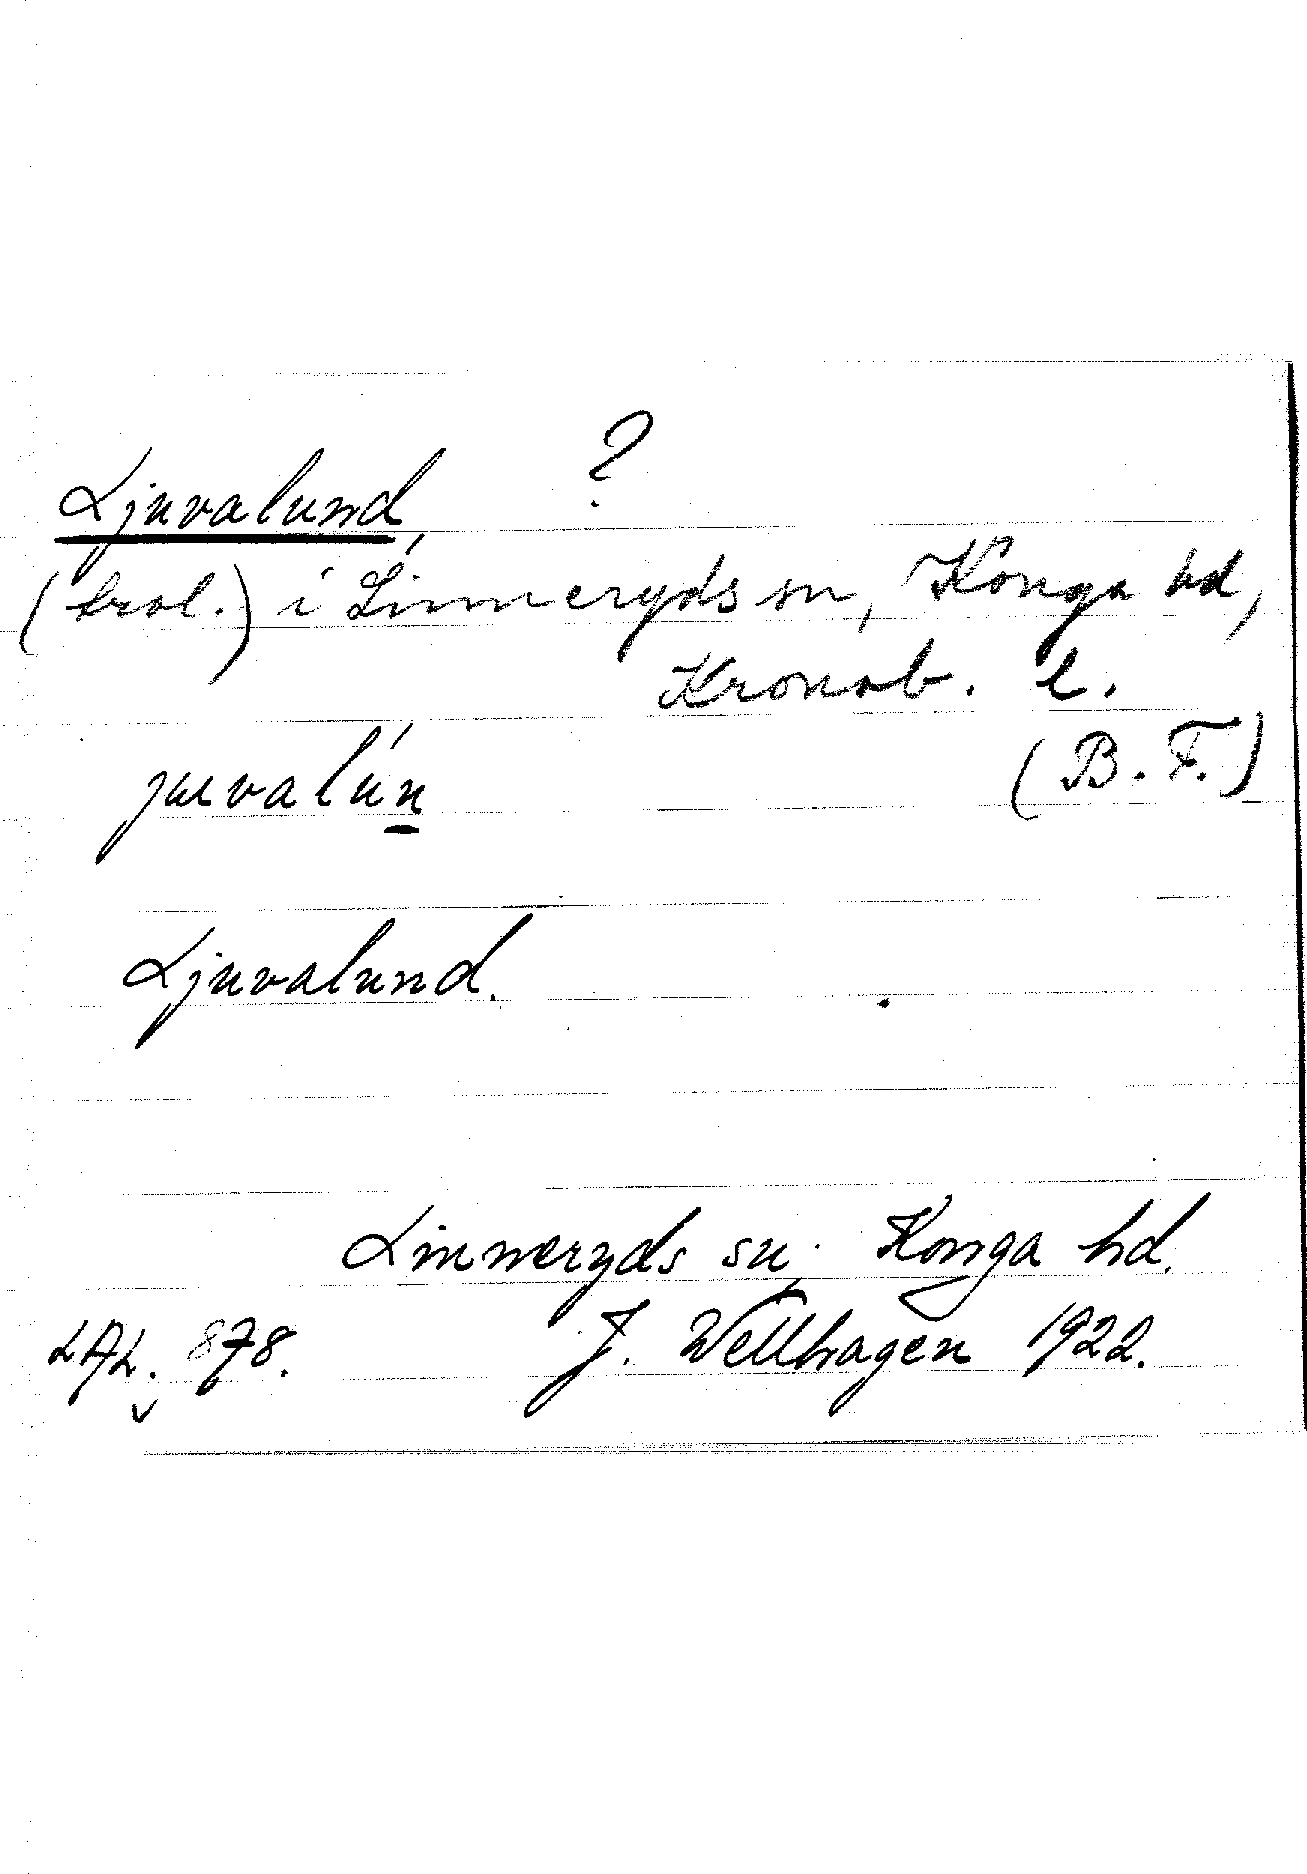 Ljuvalund, ?
(trol.) i Linneryds sn, Konga hd,
Kronob. l.
(B. F.)
juvalún
Ljuvalund.
Linneryds sn, Konga hd.
LAL. 878. J. Wellhagen 1922.